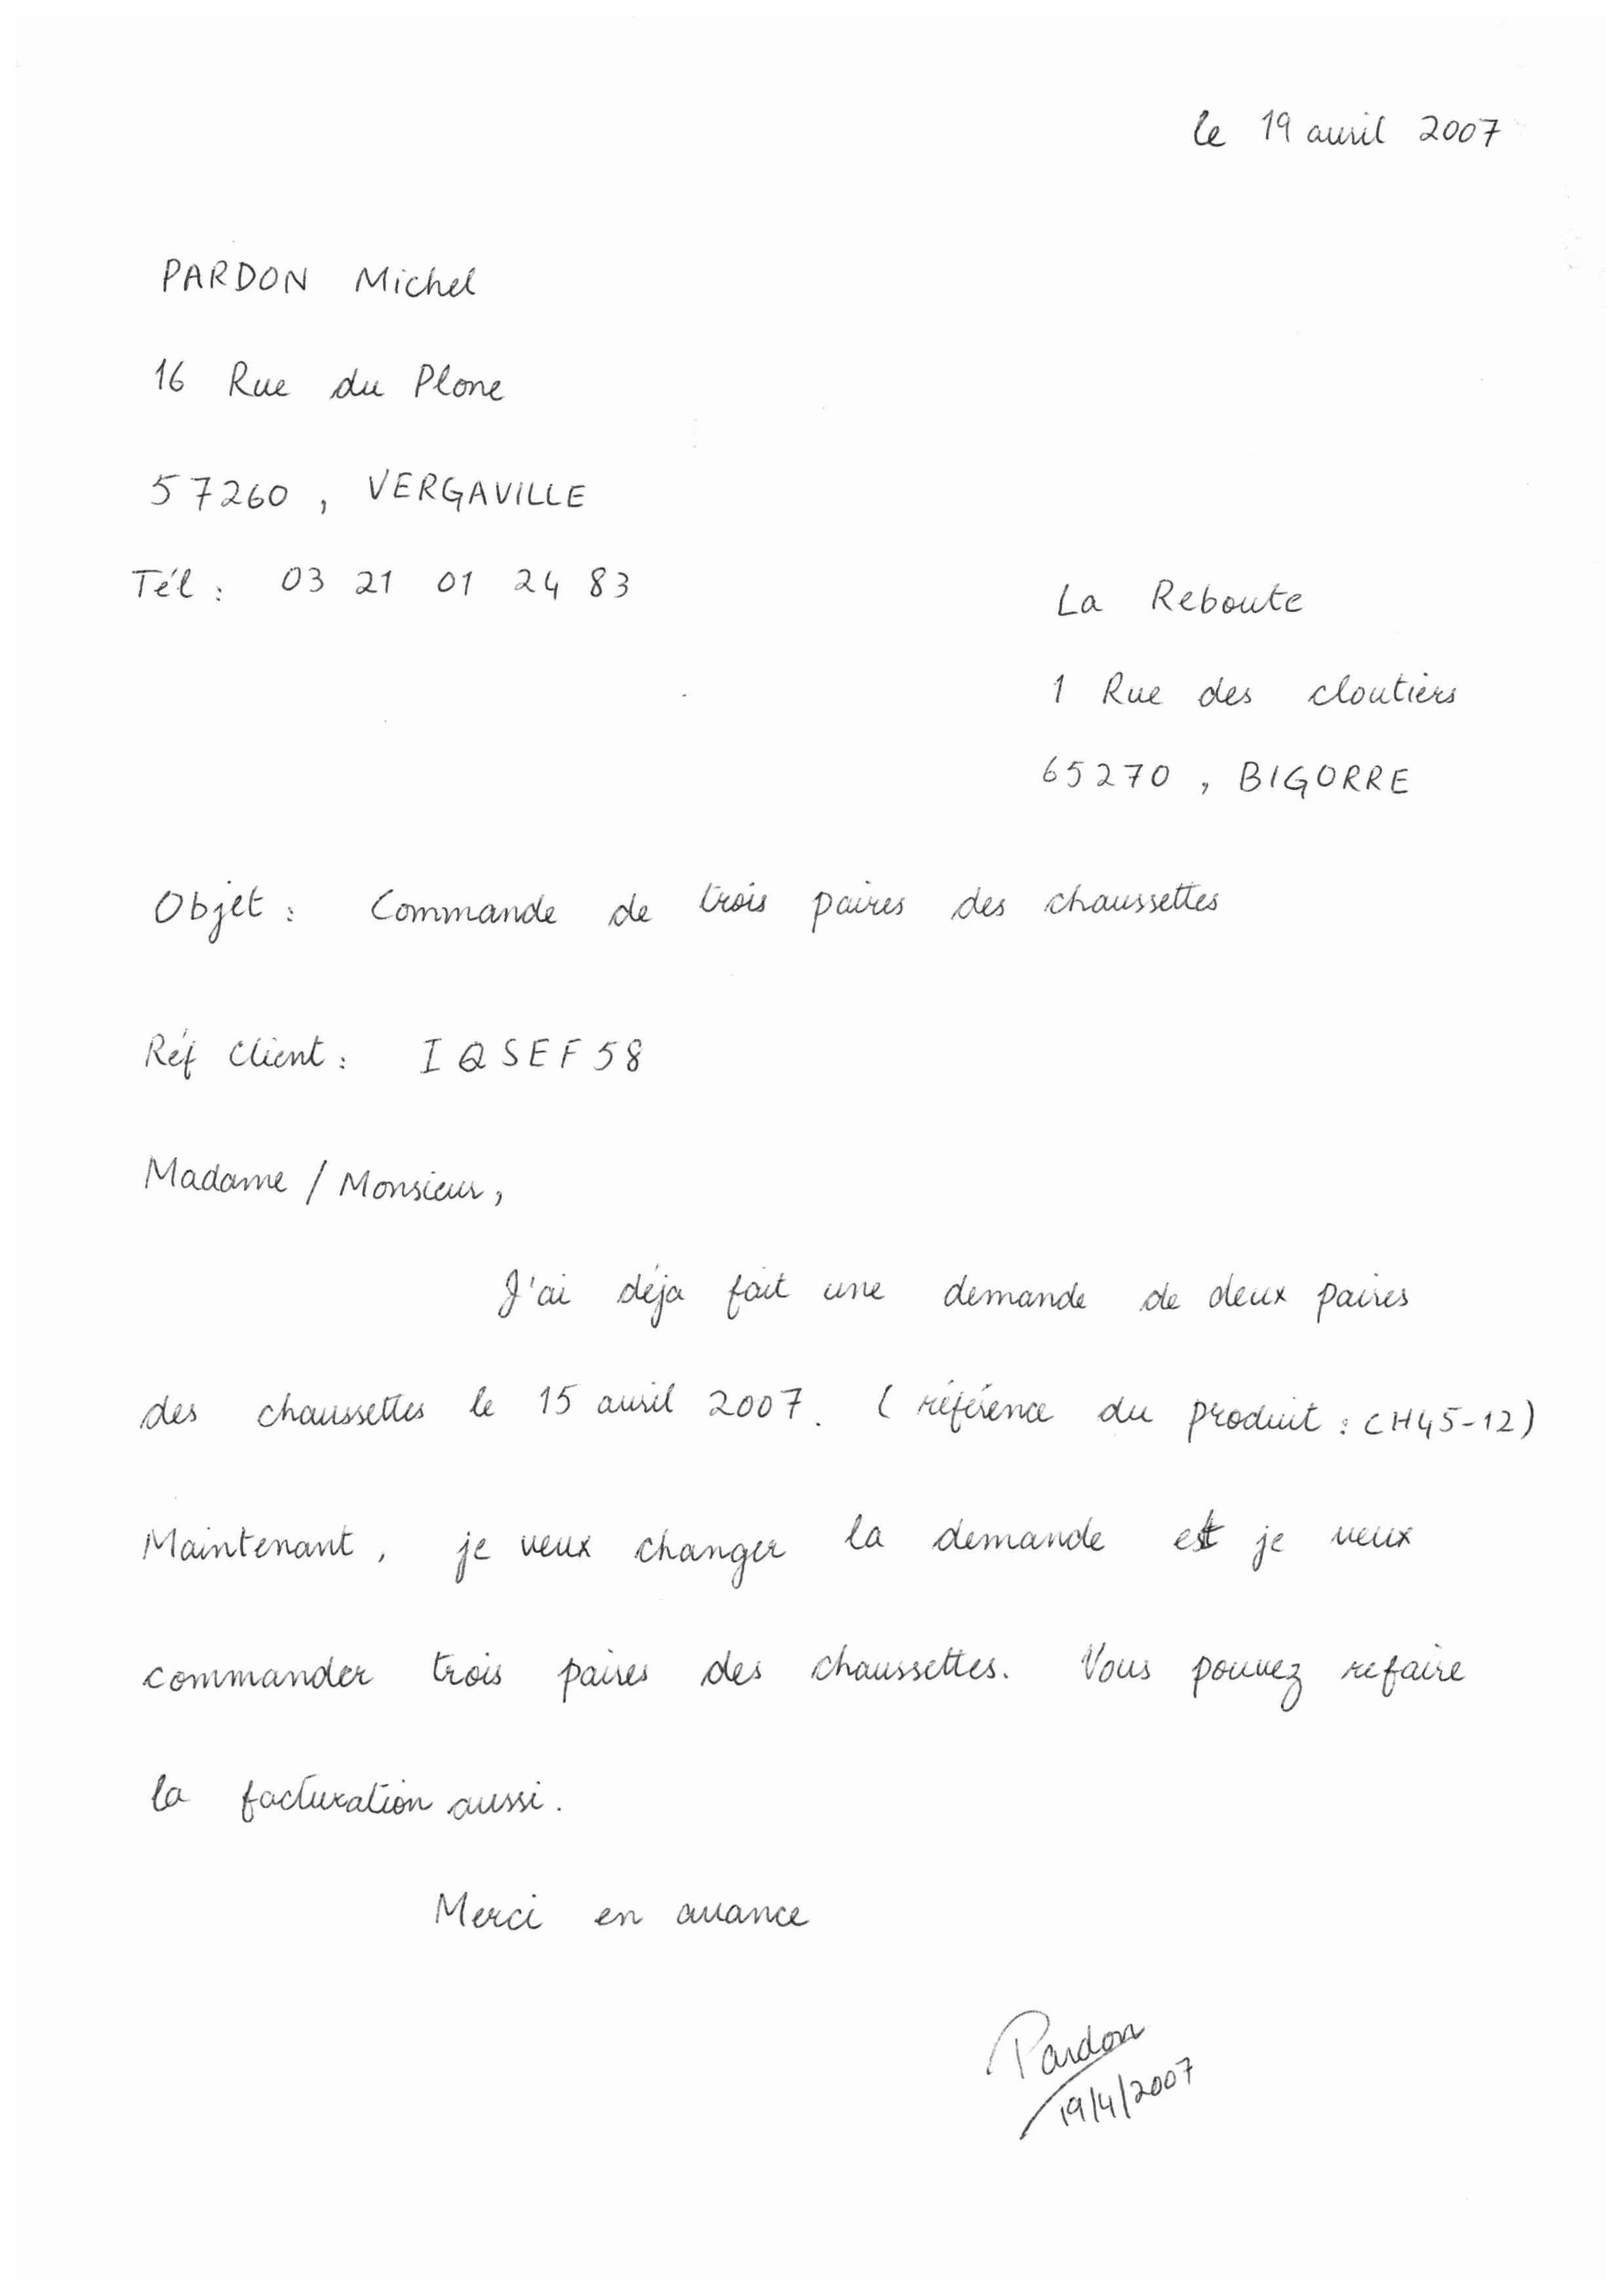 le 19 avril 2007
PARDON Michel
16 Rue du Plone
57260 , VERGAVILLE
Tél : 03 21 01 24 83
La Reboute
1 Rue des cloutiers
65270 , BIGORRE
Objet : Commande de trois paires des chaussettes
Réf Client : IQSEF58
Madame / Monsieur,
J'ai déja fait une demande de deux paires
des chaussettes le 15 avril 2007. ( référence du produit : CH45-12)
Maintenant, je veux changer la demande et je veux
commander trois paires des chaussettes. Vous pouvez refaire
la facturation aussi.
Merci en avance
Pardon
19/4/2007